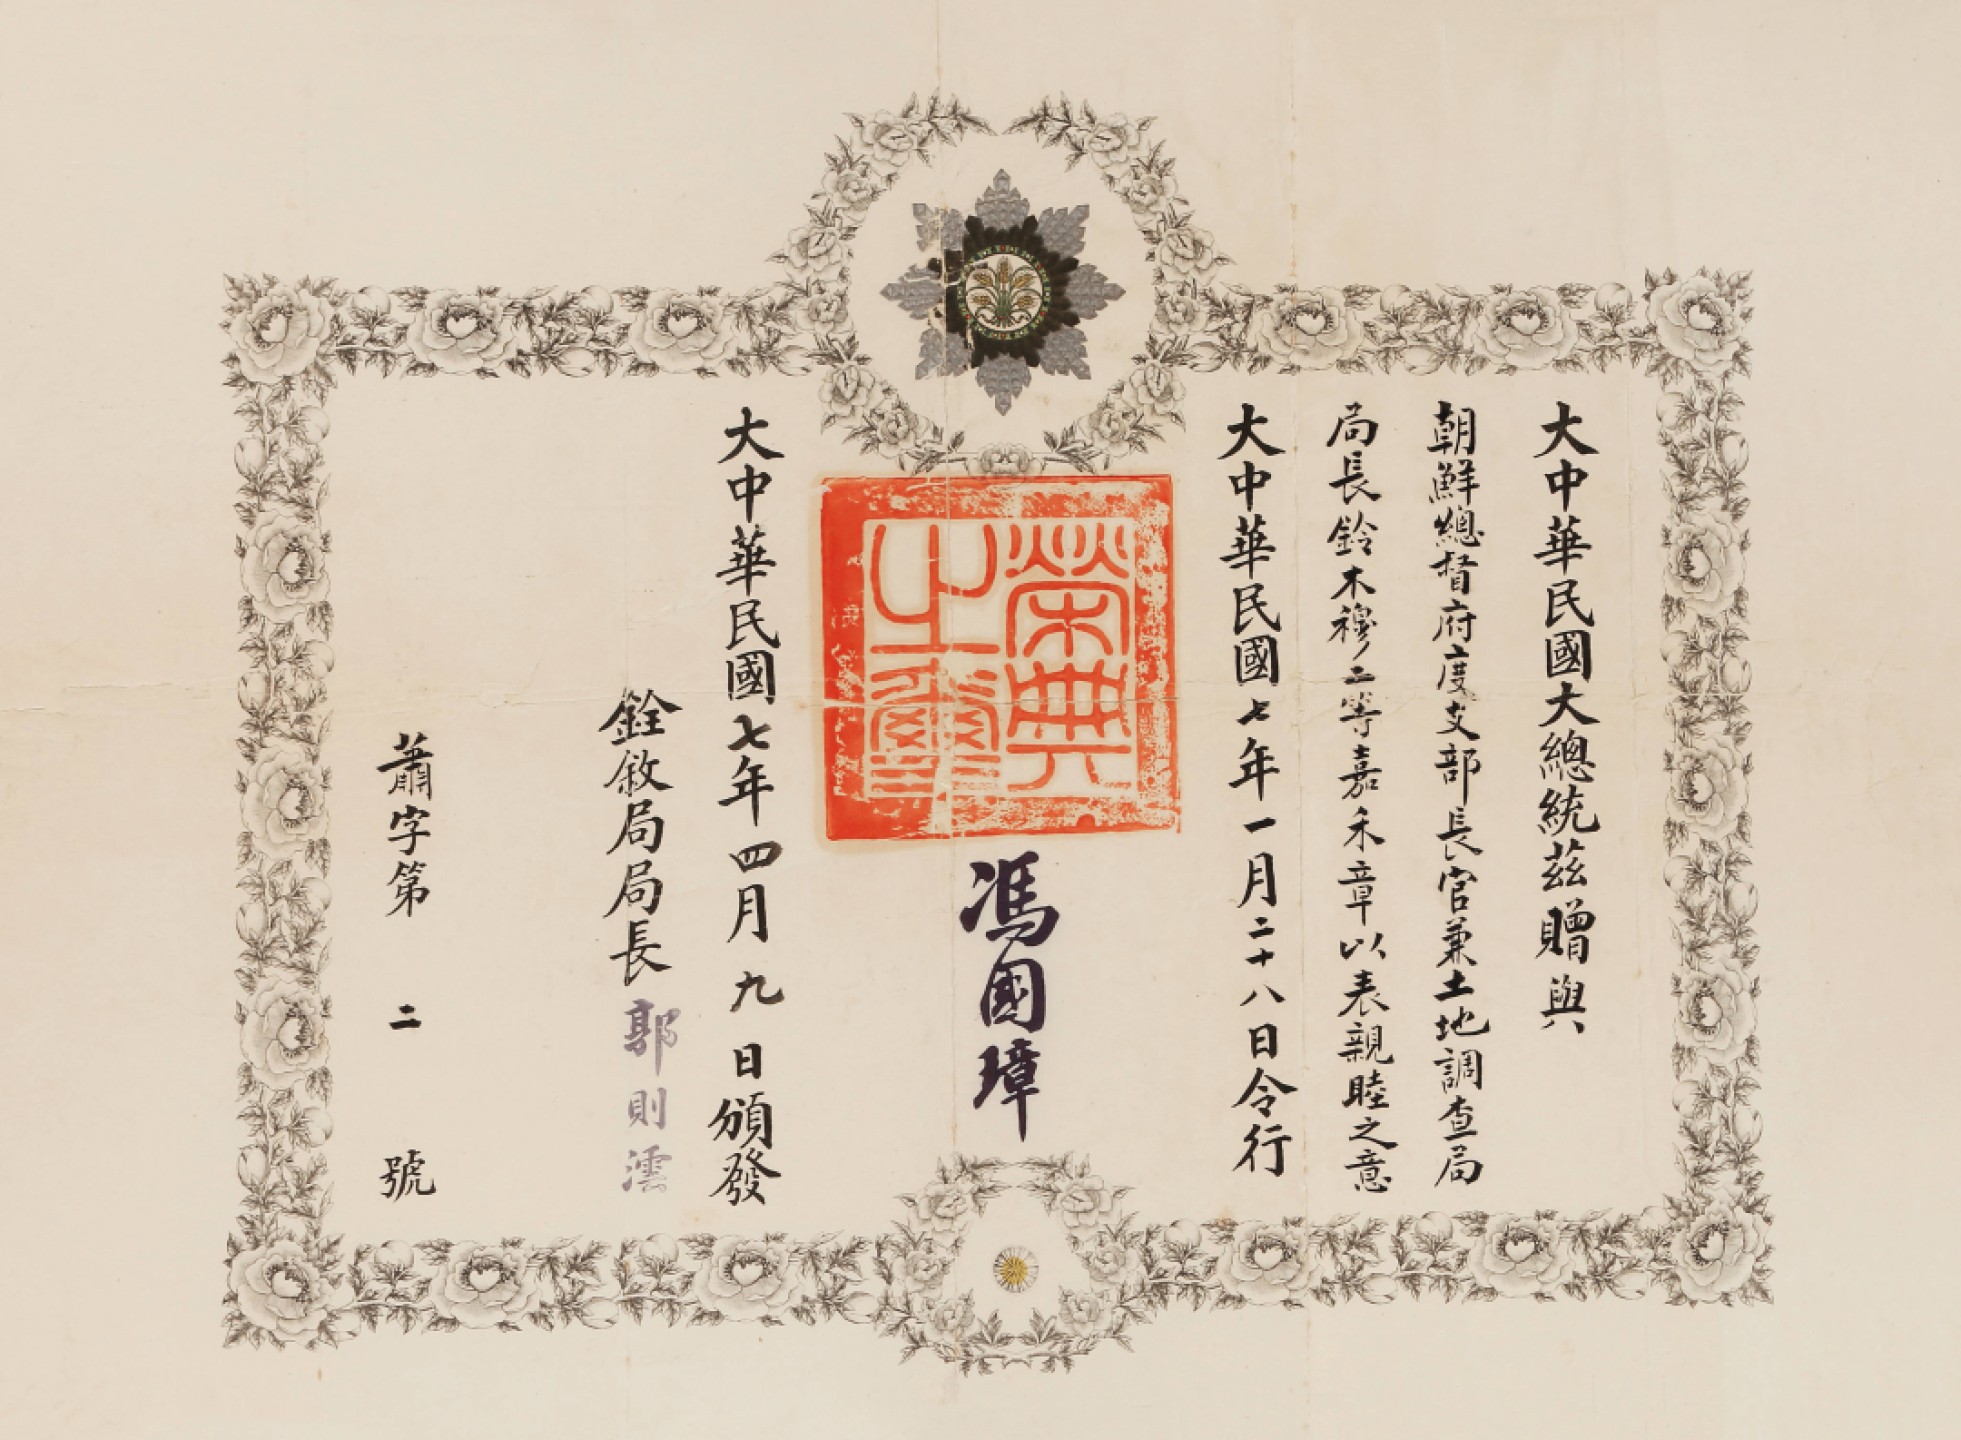 大中華民國大總統茲贈與
朝鮮總督府度支部長官兼土地調查局
局長鈴木穆二等嘉禾章以表親睦之意
大中華民國七年一月二十八日令行
榮典之璽
馮國璋
大中華民國七年四月九日頒發
銓敘局局長郭則澐
蕭字第二號